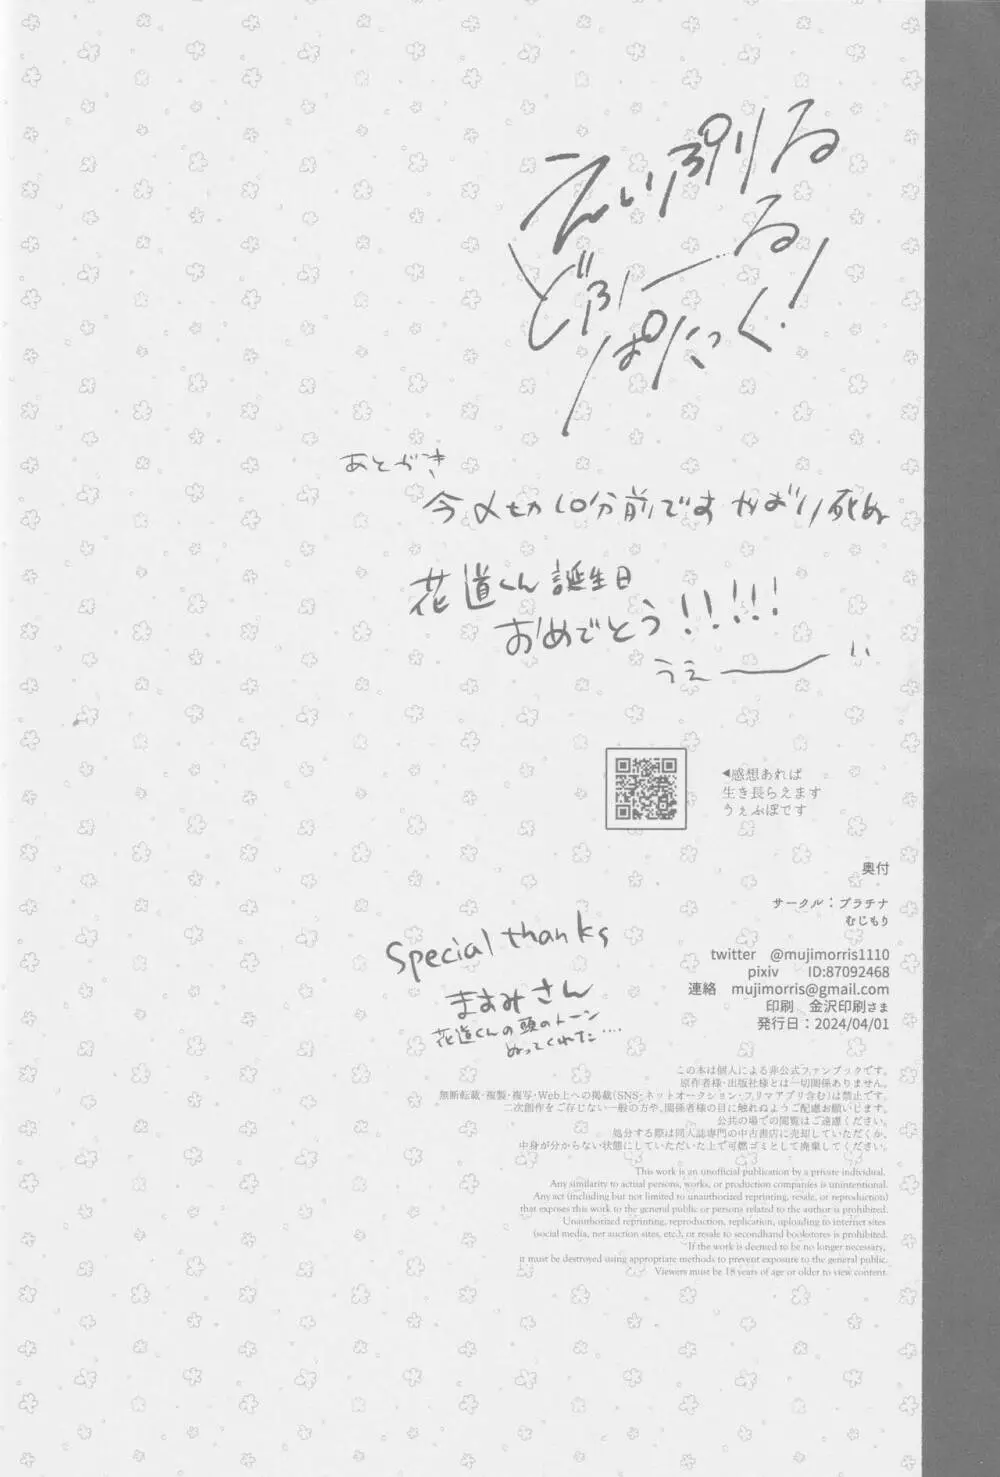 えいぷりる
どふーる
ぱにっく!
あとがき
今〆切10分前です やばい死ぬ
花道くん誕生日
おめでとう!!!!!
うえー
◀感想あれば
生き長らえます
うぇぶぼです
奥付
サークル:プラチナ
むじもり
twitter @mujimorris1110
pixiv ID:87092468
連絡 mujimorris@gmail.com
印刷 金沢印刷さま
発行日:2024/04/01
Special thanks
ますみさん
花道くんの頭のトーン
ぬってくれた....
この本は個人による非公式ファンブックです。
原作者様・出版社様とは一切関係ありません。
無断転載・複製・複写・Web上への掲載(SNS・ネットオークション・フリマアプリ含む)は禁止です。
二次創作をご存じない一般の方や、関係者様の目に触れぬようご配慮お願いします。
公共の場での閲覧はご遠慮ください。
処分する際は同人誌専門の中古書店に売却していただくか、
中身が分からない状態にしていただいた上で可燃ゴミとして廃棄してください。
This work is an unofficial publication by a private individual.
Any similarity to actual persons, works, or production companies is unintentional.
Any act (including but not limited to unauthorized reprinting, resale, or reproduction)
that exposes this work to the general public or persons related to the author is prohibited.
Unauthorized reprinting, reproduction, replication, uploading to internet sites
(social media, net auction sites, etc.), or resale to secondhand bookstores is prohibited.
If the work is deemed to be no longer necessary,
it must be destroyed using appropriate methods to prevent exposure to the general public.
Viewers must be 18 years of age or older to view content.